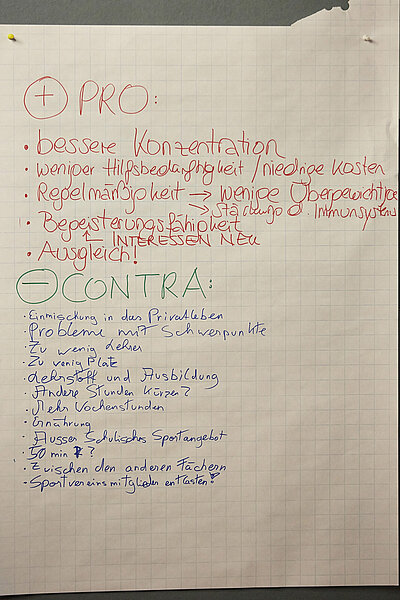 + PRO:
• bessere Konzentration
• weniger Hilfsbedürftigkeit / niedrige Kosten
• Regelmäßigkeit → wenige Übergewichtige
→ Stärkung d. Immunsystems
• Begeisterungsfähigkeit
INTERESSEN NEU
• Ausgleich!
- CONTRA:
• Einmischung in das Privatleben
• Probleme mit Schwerpunkte
• Zu wenig Lehrer
• Zu wenig Platz
• Lehrstoff und Ausbildung
• Andere Stunden kürzen?
• Mehr Wochenstunden
• Ernährung
• Ausser Schulisches Sportangebot
• 50 min ?
• Zwischen den anderen Fächern
• Sportvereinsmitglieder entlasten?